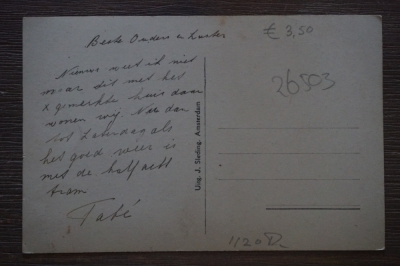 Beste Ouders en Zuster
€ 3,50
Nieuws weet ik niet
maar dit met het
x gemerkte huis daar
wonen wij. Nu dan
tot Zaterdag als
het goed weer is
met de half acht
tram
Tabé
26503
Uitg. J. Sleding, Amsterdam